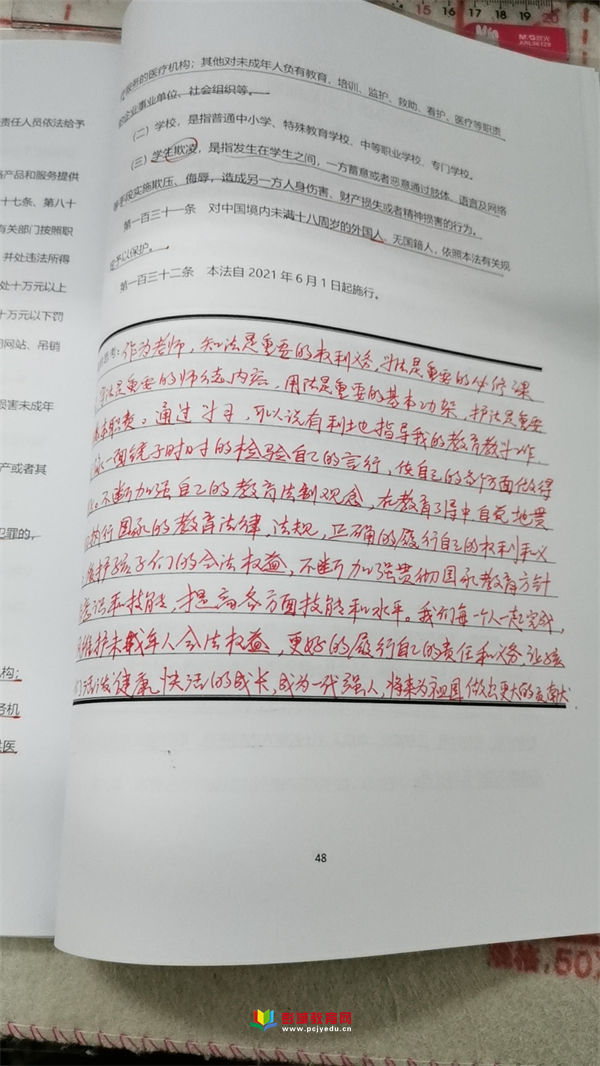 15 16 17 18 19 20
M&G
责任人员依法给予
品产品和服务提供
十七条、第八十
有关部门按照职
并处违法所得
处十万元以上
十万元以下罚
闭网站、吊销
损害未成年
产或者其
犯罪的,
机构;
务机
医
服务的医疗机构；其他对未成年人负有教育、培训、监护、救助、看护、医疗等职责
的企业事业单位、社会组织等。
（二）学校，是指普通中小学、特殊教育学校、中等职业学校、专门学校。
（三）学生欺凌，是指发生在学生之间，一方蓄意或者恶意通过肢体、语言及网络
等手段实施欺压、侮辱，造成另一方人身伤害、财产损失或者精神损害的行为。
第一百三十一条 对中国境内未满十八周岁的外国人、无国籍人，依照本法有关规
定予以保护。
第一百三十二条 本法自 2021 年 6 月 1 日起施行。
思考：作为老师，知法是重要的权利义务，学法是重要的必修课
守法是重要的师德内容，用法是重要的基本功架，护法是重要
基本职责。通过学习，可以说有利地指导我的教育教学工作，
一面镜子时时的检验自己的言行，使自己的各个方面做得
不断加强自己的教育法制观念，在教育习得中自觉地贯
执行国家的教育法律，法规，正确的履行自己的权利和义
维护孩子们的合法权益，不断加强贯彻国家教育方针
意识和技能，提高各方面技能和水平。我们每一个人一起完成，
维护未成年人合法权益，更好的履行自己的责任和义务让孩
们活泼健康快活的成长，成为一代强人，将来为祖国做出更大的贡献！
48
格,50
教育网
www.pcjyedu.cn